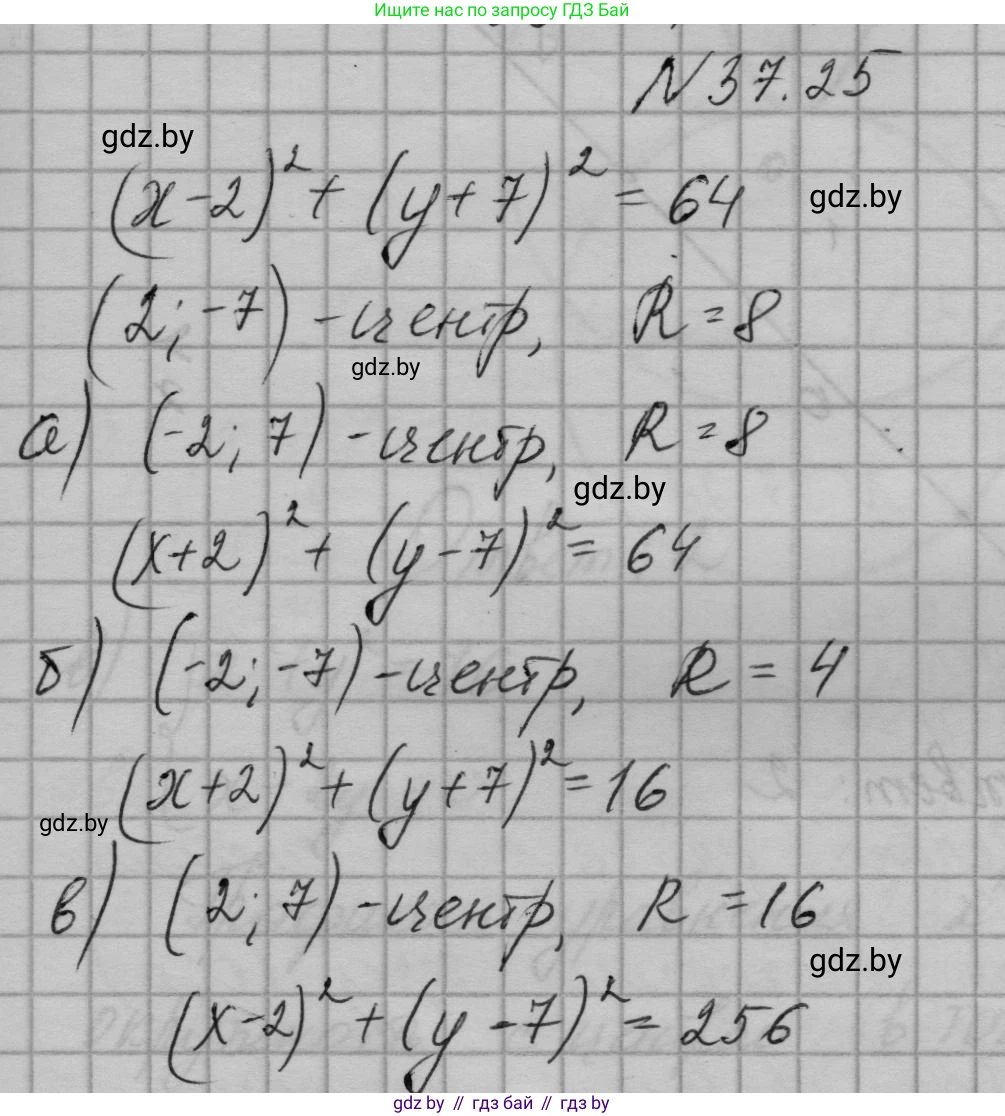 Ищите нас по запросу ГДЗ Бай
N 37.25
gdz.by
(x-2)² + (y+7)² = 64
gdz.by
(2; -7) - центр, R = 8
gdz.by
а) (-2; 7) - центр, R = 8
gdz.by
(x+2)² + (y-7)² = 64
б) (-2; -7) - центр, R = 4
(x+2)² + (y+7)² = 16
gdz.by
в) (2; 7) - центр, R = 16
gdz.by
(x-2)² + (y-7)² = 256
gdz by // гдз бай // гдз by